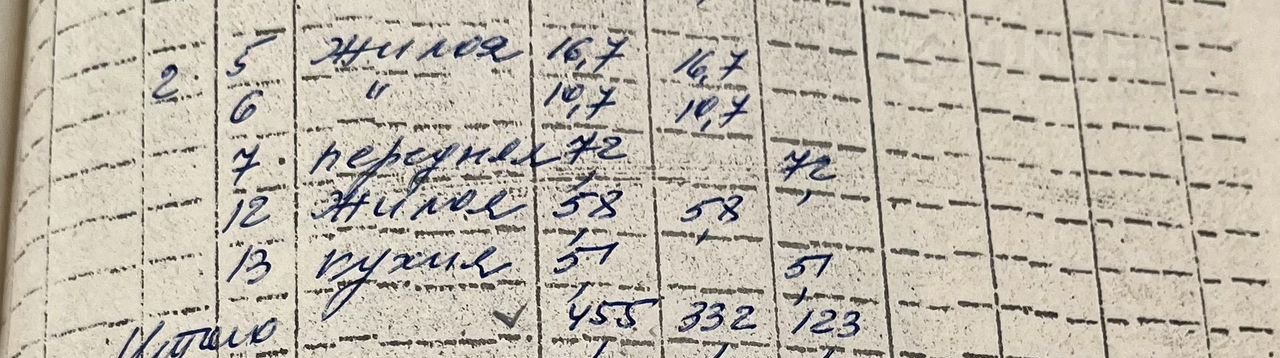 2 5 Жилая 16,7 16,7
6 " 10,7 10,7
7 передняя 7,2 7,2
12 Жилая 5,8 5,8
13 кухня 5,1 5,1
Итого 45,5 33,2 12,3